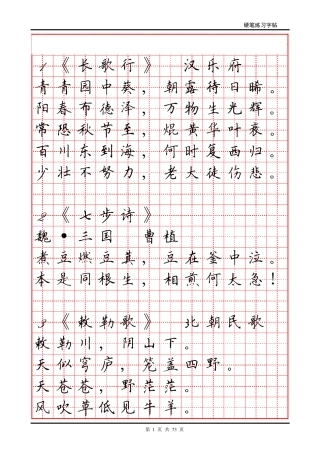 硬笔练习字帖
1《长歌行》 汉乐府
青青园中葵，朝露待日晞。
阳春布德泽，万物生光辉。
常恐秋节至，焜黄华叶衰。
百川东到海，何时复西归。
少壮不努力，老大徒伤悲。
2《七步诗》
魏·三国 曹植
煮豆燃豆萁，豆在釜中泣。
本是同根生，相煎何太急！
3《敕勒歌》 北朝民歌
敕勒川，阴山下。
天似穹庐，笼盖四野。
天苍苍，野茫茫。
风吹草低见牛羊。
第 1 页 共 73 页